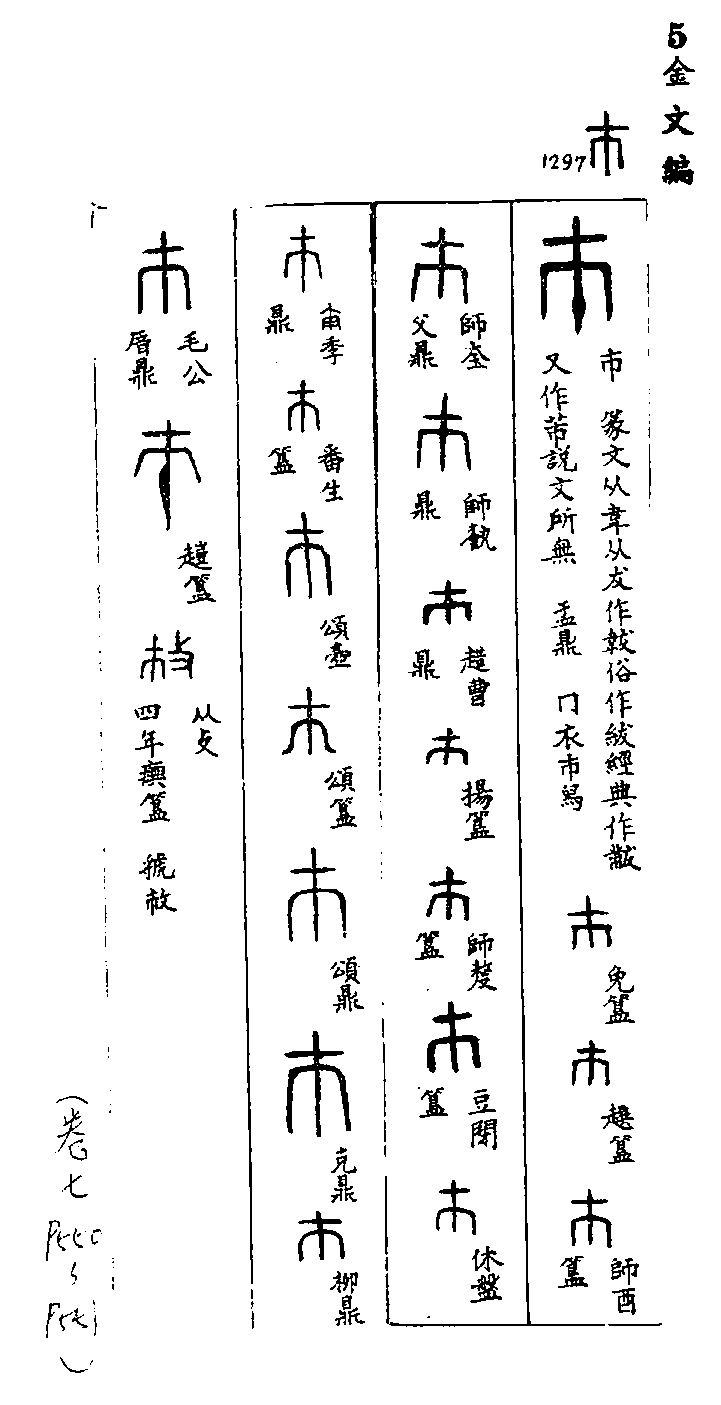 5金文編
市
1297
市 篆文从韋从犮作韍俗作紱經典作黻
又作芾說文所無 盂鼎 冂衣市舄
免簋
趩簋
師酉簋
師𡘇父鼎
師𩛥鼎
趞曹鼎
揚簋
師嫠簋
豆閉簋
休盤
南季鼎
番生簋
頌壺
頌簋
頌鼎
克鼎
柳鼎
毛公㫳鼎
趞簋
从攴
四年𤼈簋 虢𢼄
(卷七